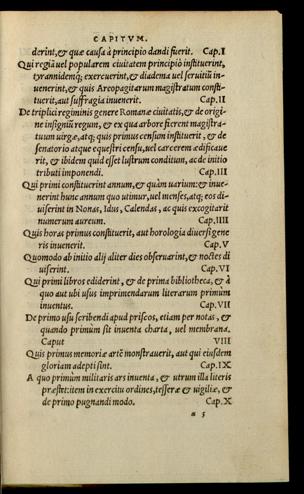 CAPITVM.
derint, & quæ causa à principio dandi fuerit. Cap.I
Qui regiã uel popularem ciuitatem principiò instituerint,
tyrannidemq; exercuerint, & diadema uel seruitiũ in-
uenerint, & quis Areopagitarum magistratum consti-
tuerit, aut suffragia inuenerit. Cap.II
De triplici regiminis genere Romanæ ciuitatis, & de origi-
ne insigniũ regum, & ex qua arbore fierent magistra-
tuum uirgæ, atq; quis primus censum instituerit, & de
senatorio atque equestri censu, uel carcerem ædificaue
rit, & ibidem quid esset lustrum conditum, ac de initio
tributi imponendi. Cap.III
Qui primi constituerint annum, & quàm uarium: & inue-
nerint hunc annum quo utimur, uel menses, atq; eos di-
uiserint in Nonas, Idus, Calendas, ac quis excogitarit
numerum aureum. Cap.IIII
Quis horas primus constituerit, aut horologia diuersi gene
ris inuenerit. Cap.V
Quomodo ab initio alij aliter dies obseruarint, & noctes di
uiserint. Cap.VI
Qui primi libros ediderint, & de prima bibliotheca, & à
quo aut ubi usus imprimendarum literarum primùm
inuentus. Cap.VII
De primo usu scribendi apud priscos, etiam per notas, &
quando primùm sit inuenta charta, uel membrana.
Caput VIII
Quis primus memoriæ artẽ monstrauerit, aut qui eiusdem
gloriam adepti sint. Cap.IX
A quo primùm militaris ars inuenta, & utrum illa literis
præstet: item in exercitu ordines, tesseræ & uigiliæ, &
de primo pugnandi modo. Cap.X
a 5